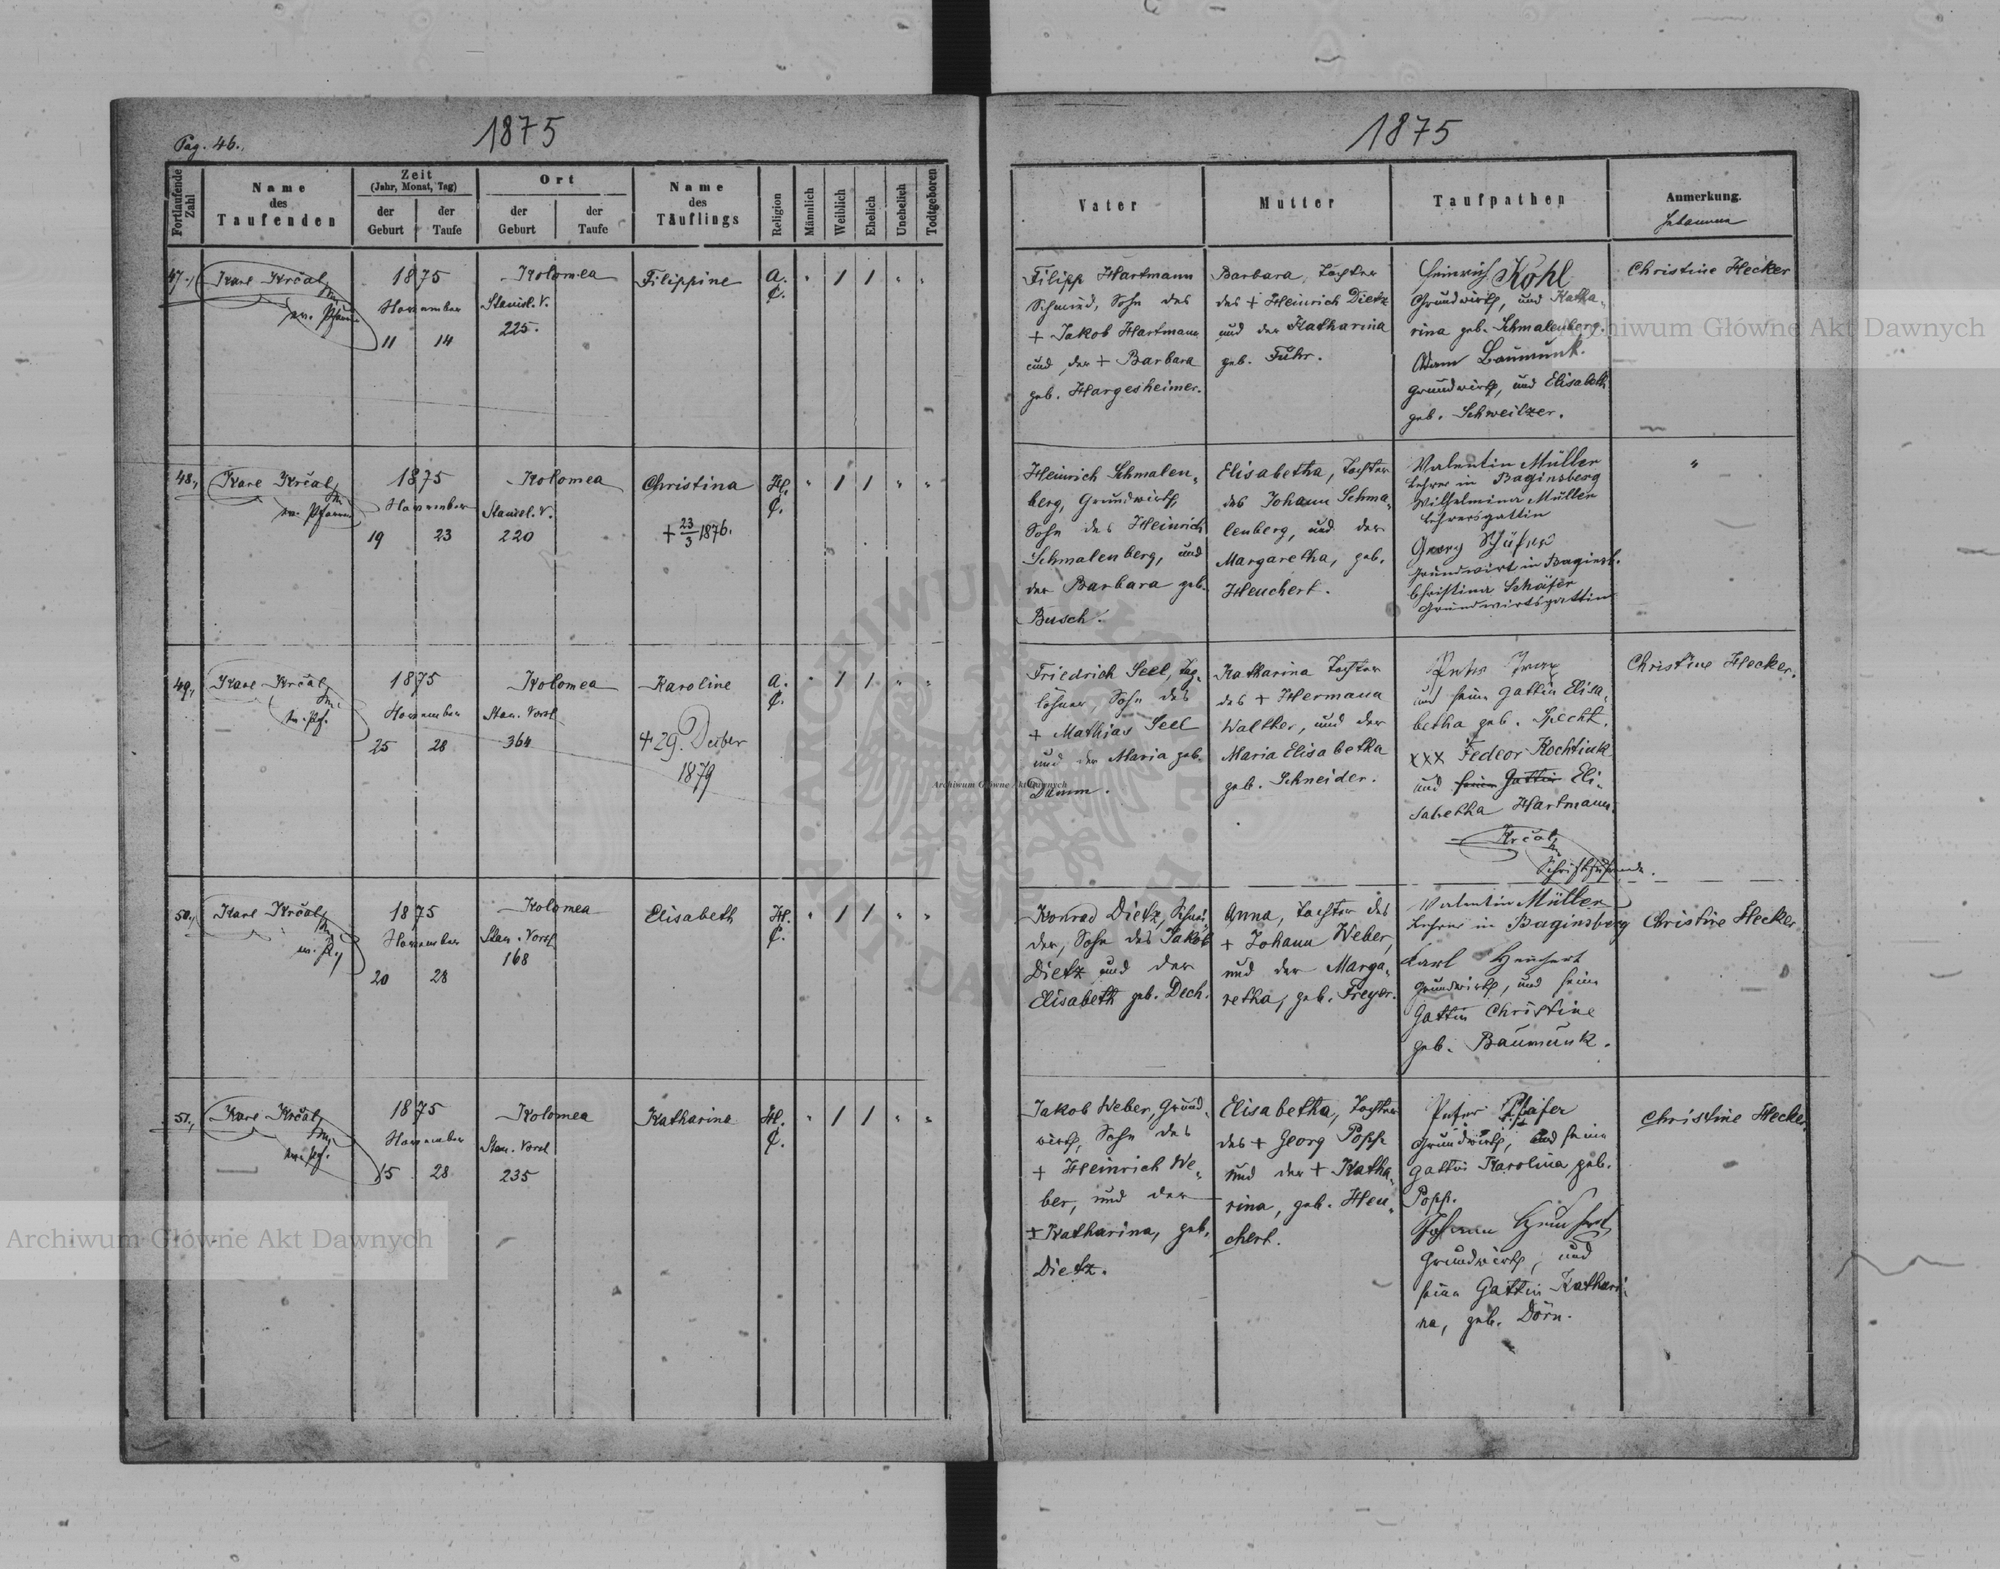 Pag. 46.
1875
Fortlaufende Zahl
Name des Taufenden
Zeit
(Jahr, Monat, Tag)
der Geburt
der Taufe
Ort
der Geburt
der Taufe
Name des Täuflings
Religion
Männlich
Weiblich
Ehelich
Unehelich
Todtgeboren
47.
Karl Krčal
ev. Pfarrer
1875
November
11 14
Kolomea
Stanisl. V.
225.
Filippine
A. C.
" 1 1 " "
48.,
Karl Krčal
ev. Pfarrer
1875
November
19 23
Kolomea
Stanisl. V.
220
Christina
+ 23/3 1876.
H. C.
" 1 1 " "
49.,
Karl Krčal
ev. Pf.
1875
November
25 28
Kolomea
Stan. Vorst
364
Karoline
+ 29. Dceber
1879
A. C.
" 1 1 " "
50.,
Karl Krčal
ev. Pf.
1875
November
20 28
Kolomea
Stan. Vorst
168
Elisabeth
H. C.
" 1 1 " "
51.,
Karl Krčal
ev. Pf.
1875
November
15 28
Kolomea
Stan. Vorst
235
Katharina
H. C.
" 1 1 " "
1875
Vater
Mutter
Taufpathen
Anmerkung.
Hebamme
Filipp Hartmann
Schmied, Sohn des
+ Jakob Hartmann
und der + Barbara
geb. Hargesheimer.
Barbara, Tochter
des + Heinrich Dietz
und der Katharina
geb. Fuhr.
Heinrich Kohl
Grundwirth, und Katha-
rina geb. Schmalenberg.
Adam Baumunk.
Grundwirth, und Elisabeth
geb. Schweitzer.
Christine Hecker
Heinrich Schmalen-
berg, Grundwirth,
Sohn des Heinrich
Schmalenberg, und
der Barbara geb.
Busch.
Elisabetha, Tochter
des Johann Schma-
lenberg, und der
Margaretha, geb.
Heuchert.
Valentin Müller
Lehrer in Baginsberg
Wilhelmina Müller
Lehrersgattin
Georg Schäfer
Grundwirt in Baginsb.
Christina Schäfer
Grundwirtsgattin
"
Friedrich Seel, Tag-
löhner, Sohn des
+ Mathias Seel
und der Maria geb.
Damm.
Katharina Tochter
des + Hermann
Walther, und der
Maria Elisabetha
geb. Schneider.
und seine Gattin Elisa-
betha geb. Specht.
xxx Fedeor Kochtiuk
und seine Gattin Eli-
sabetha Hartmann.
Krčal
Schriftführende.
Christine Hecker.
Konrad Dietz, Schnei-
der, Sohn des Jakob
Dietz und der
Elisabeth geb. Dech.
Anna, Tochter des
+ Johann Weber,
und der Marga-
retha, geb. Freyer.
Valentin Müller
Lehrer in Baginsberg
Karl Heuchert
Grundwirth, und seine
Gattin Christine
geb. Baumunk.
Christine Hecker
Jakob Weber, Grund-
wirth, Sohn des
+ Heinrich We-
ber, und der
+ Katharina, geb.
Dietz.
Elisabetha, Tochter
des + Georg Popp
und der + Katha-
rina, geb. Heu-
chert.
Peter
Grundwirth, und seine
Gattin Karolina geb.
Popp.
Johann Heuchert,
Grundwirth, und
seine Gattin Kathari-
na, geb. Dörn.
Christine Hecker
Archiwum Główne Akt Dawnych
Archiwum Główne Akt Dawnych
Archiwum Główne Akt Dawnych